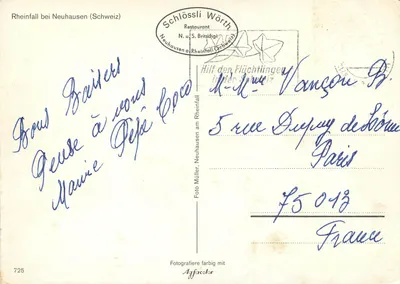 Rheinfall bei Neuhausen (Schweiz)
Schlössli Wörth
Restaurant
N. u. S. Brindigi
Neuhausen a. Rheinfall (Schweiz)
Hilf den Flüchtlingen
Bons Baisers
Pense à vous
Pépé Coco
M. Mme Vançon B.
5 rue Dupuy de Lôme
Paris
75013
France
Foto Müller, Neuhausen am Rheinfall
725
Fotografiere farbig mit
Agfacolor